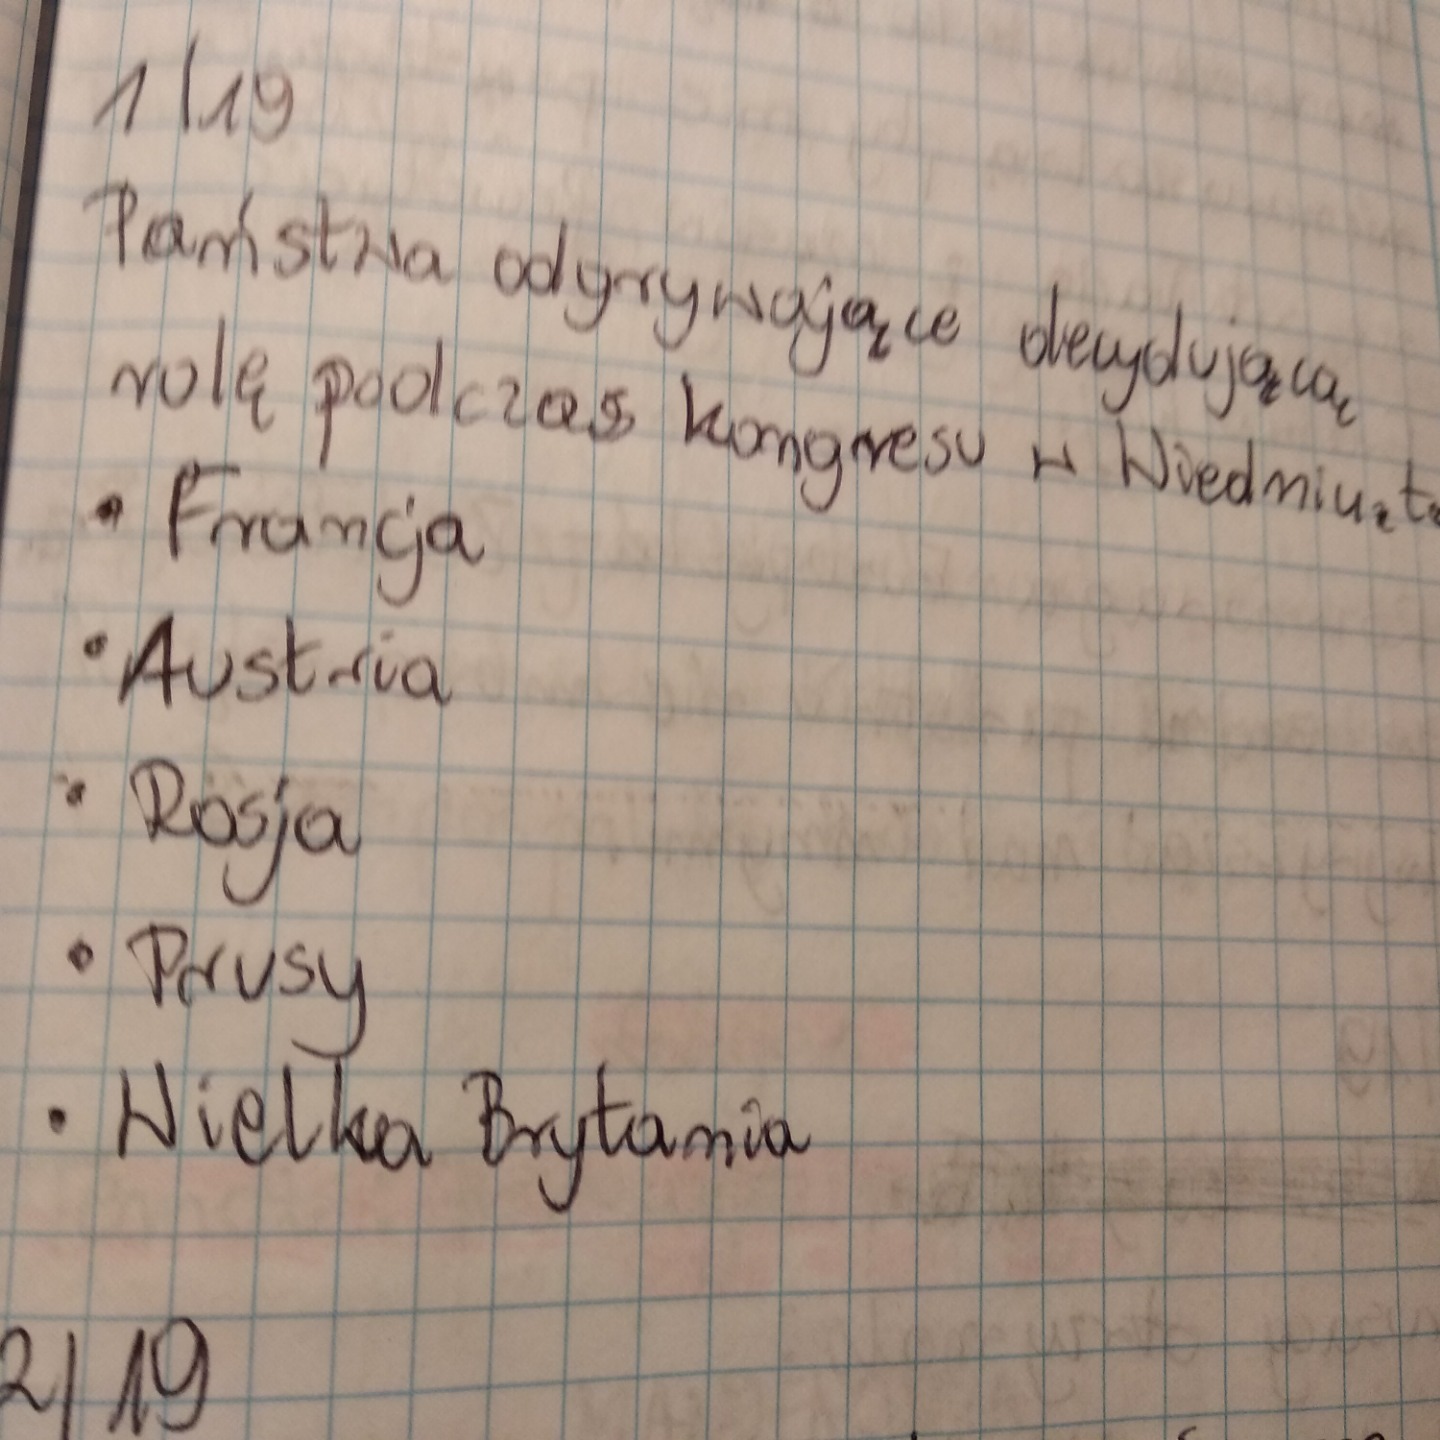 1/19
Państwa odgrywające decydującą
rolę podczas kongresu w Wiedniu, to
• Francja
• Austria
• Rosja
• Prusy
• Wielka Brytania
2/19